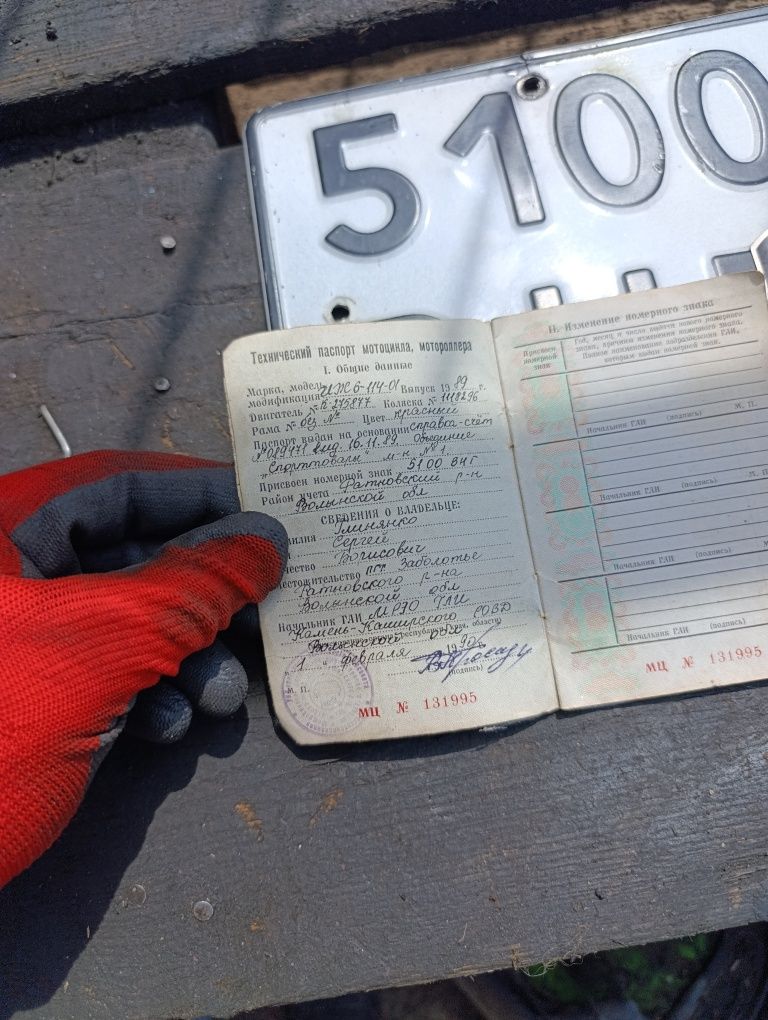 5100
Технический паспорт мотоцикла, мотороллера
I. Общие данные
Марка, модель,
модификация ИЖ 6-114-01 Выпуск 19 89 г.
Двигатель № К 275877 Коляска № 1118296
Рама № без № Цвет красный
Паспорт выдан на основании справка-счёт
№ 089471 выд. 16.11.89. Объединение
"Спорттовары" м-н № 1.
Присвоен номерной знак 5100 ВЧГ
Район учета Ратновский р-н
Волынской обл
СВЕДЕНИЯ О ВЛАДЕЛЬЦЕ:
милия
Сергей
чество Борисович
естожительство пгт. Заболотье
Ратновского р-на
Волынской обл
Начальник ГАИ МРЭО ГАИ
Камень-Каширского РОВД
Волынской обл
"1" февраля 1990г.
(подпись)
М. П.
МЦ № 131995
II. Изменение номерного знака
Присвоен номерной знак
Год, месяц и число выдачи нового номерного
знака, причина изменения номерного знака.
Полное наименование подразделения ГАИ,
которым выдан номерной знак.
Начальник ГАИ (подпись) М. П.
Начальник ГАИ (подпись) М. П.
Начальник ГАИ (подпись) М
Начальник ГАИ (подпись)
МЦ № 131995